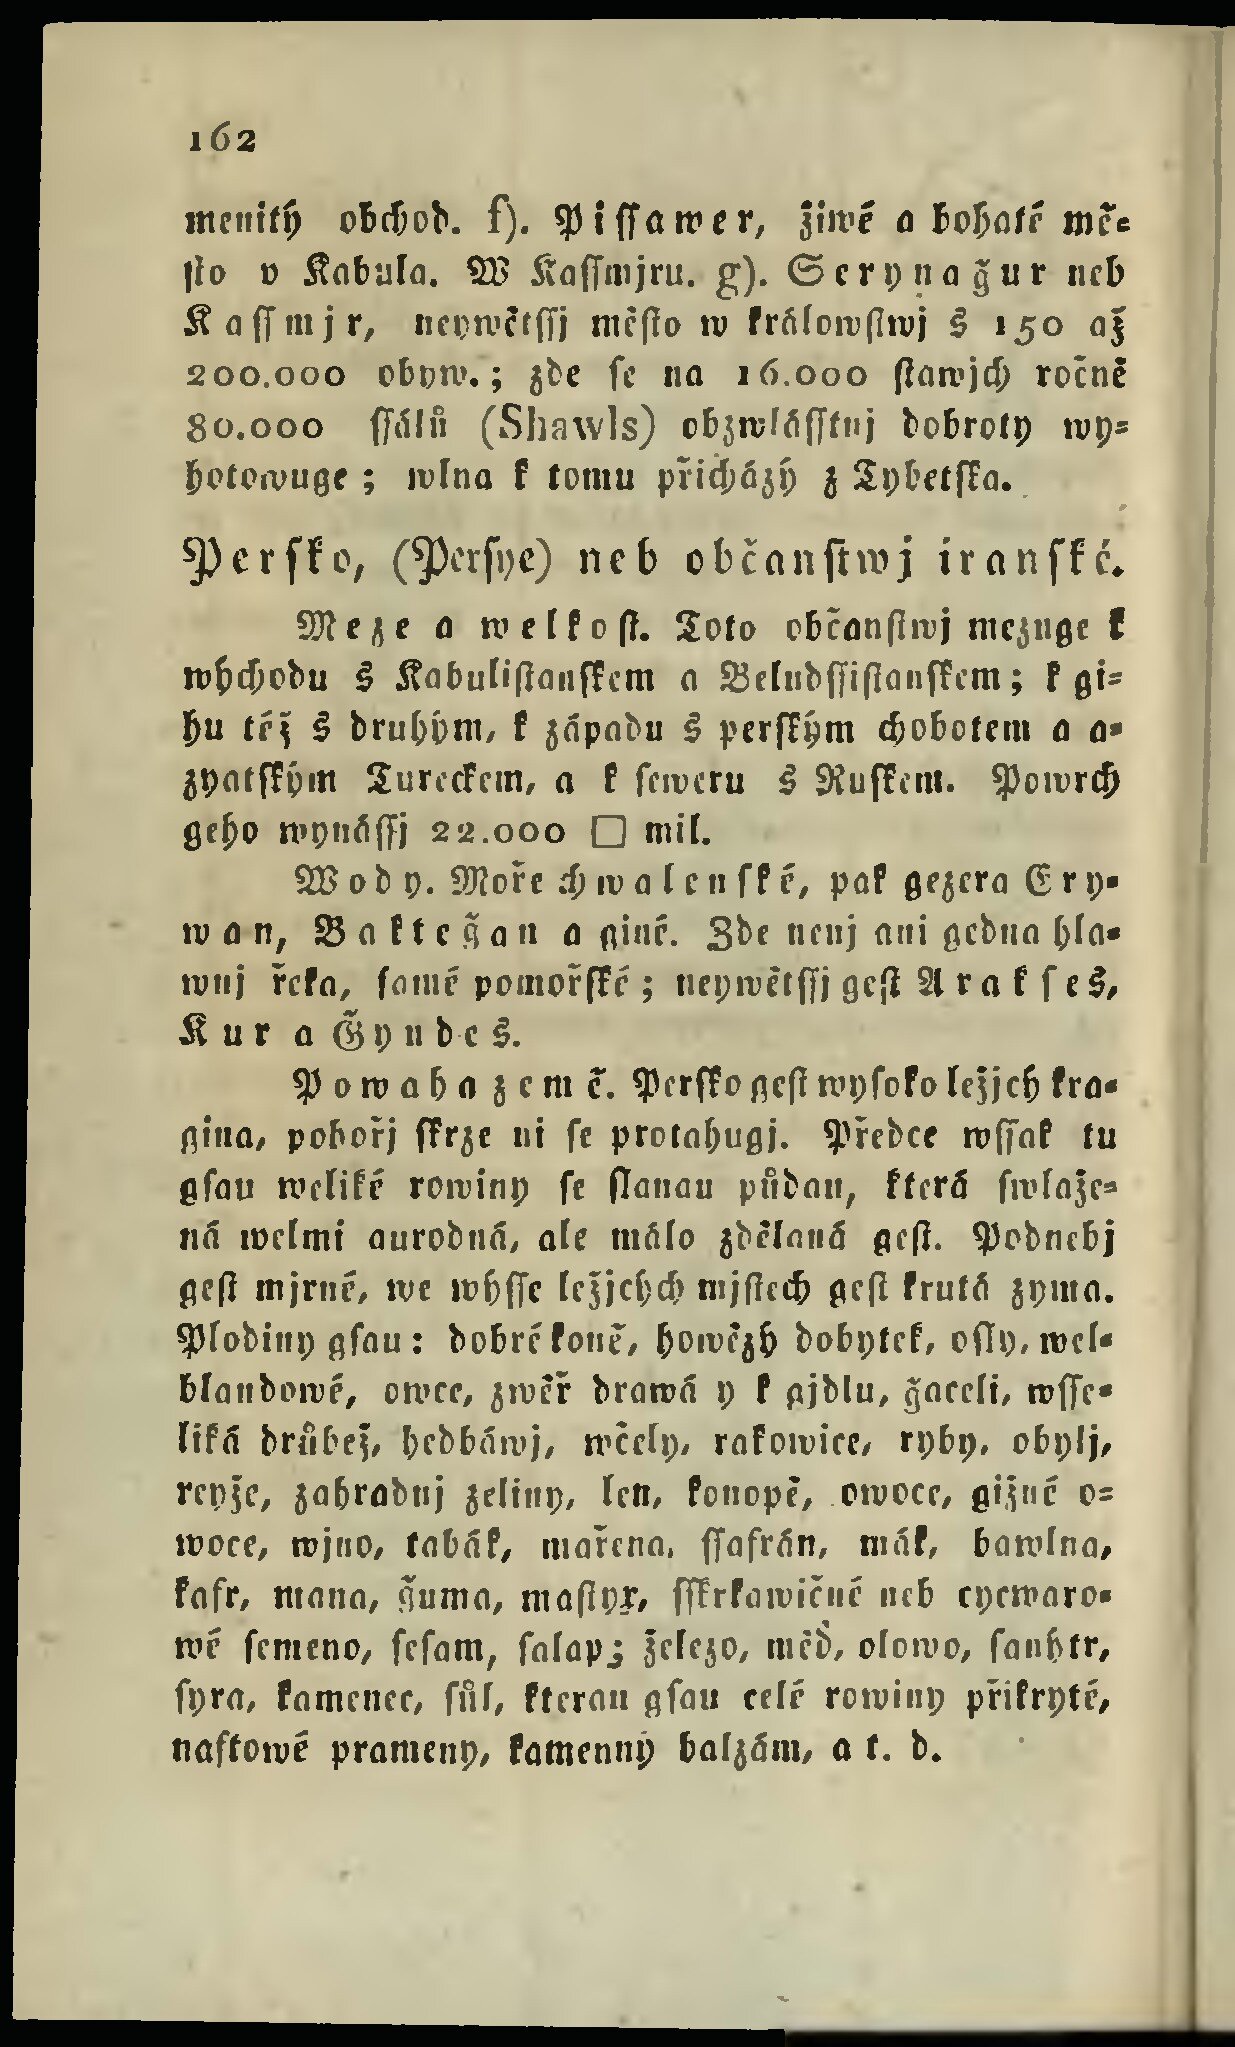 162
menitý obchod. f). Piſſawer, žiwé a bohaté mě-
ſto v Kabula. W Kaſſmjru. g). Serynağur neb
Kaſſmjr, neywětſſj město w králowſtwj s 150 až
200.000 obyw.; zde ſe na 16.000 ſtawjch ročně
80.000 ſſálů (Shawls) obzwláſſtnj dobroty wy-
hotowuge; wlna k tomu přicházý z Tybetſka.
Perſko, (Perſye) neb občanſtwj iranſké.
Meze a welkoſt. Toto občanſtwj mezuge k
wýchodu s Kabuliſtanſkem a Beludſſiſtanſkem; k gi-
hu též s druhým, k západu s perſkým chobotem a a-
zyatſkým Tureckem, a k ſeweru s Ruſkem. Powrch
geho wynáſſj 22.000 □ mil.
Wody. Moře chwalenſké, pak gezera Ery-
wan, Bakteğan a giné. Zde nenj ani gedna hla-
wnj řeka, ſamé pomořſké; neywětſſj geſt Arakſes,
Kur a Ğyndes.
Powaha země. Perſko geſt wyſoko ležjcý kra-
gina, pohořj ſkrze ni ſe protahugj. Předce wſſak tu
gſau weliké rowiny ſe ſlanau půdau, která ſwlaže-
ná welmi aurodná, ale málo zdělaná geſt. Podnebj
geſt mjrné, we wýſſe ležjcých mjſtech geſt krutá zyma.
Plodiny gſau: dobré koně, howězý dobytek, oſly, wel-
blaudowé, owce, zwěř drawá y k gjdlu, ğaceli, wſſe-
liká drůbež, hedbáwj, wčely, rakowice, ryby, obylj,
reyže, zahradnj zeliny, len, konopě, owoce, gižné o-
woce, wjno, tabák, mařena, ſſafrán, mák, bawlna,
kafr, mana, ğuma, maſtyx, ſſkrkawičné neb cycwaro-
wé ſemeno, ſeſam, ſalap; železo, měď, olowo, ſanytr,
ſyra, kamenec, ſůl, kterau gſau celé rowiny přikryté,
naftowé prameny, kamenný balzám, a t. d.